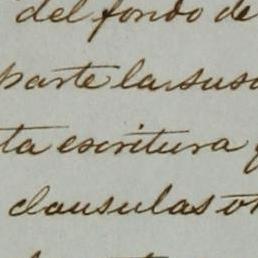 del fondo de
parte la susc
ta escritura
clausulas